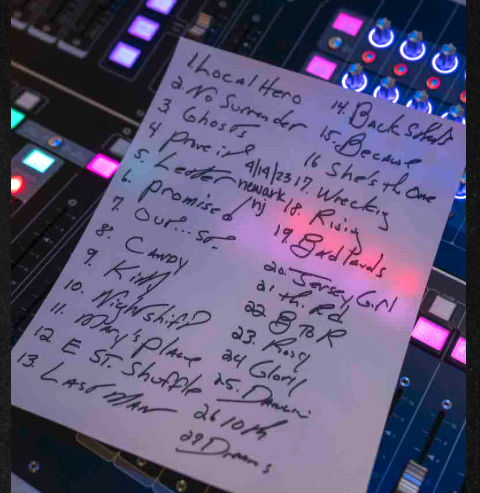 1. Local Hero
2. No Surrender
3. Ghosts
4 Prove it
5. Letter
6. Promised
7. Our...st.
8. Candy
9. Kitty
10. Nightshift
11. Mary's Place
12. E St. Shuffle
13. Last Man
4/14/23
newark
nj
14. Backstreets
15. Because
16 She's the One
17. Wrecking
18. Rising
19. Badlands
20. Jersey Girl
21 th. Rd
22 B to R
23. Rosy
24 Glory
25. Dancin
26 10th
27 Dreams